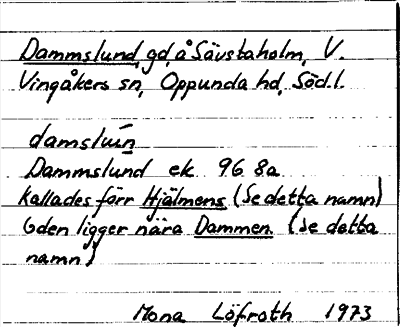 Dammslund, gd, å Sävstaholm, V.
Vingåkers sn, Oppunda hd, Söd.l.
damsluń̠
Dammslund ek 96 8a
Kallades förr Hjälmens (Se detta namn)
Gden ligger nära Dammen (se detta
namn)
Mona Löfroth 1973